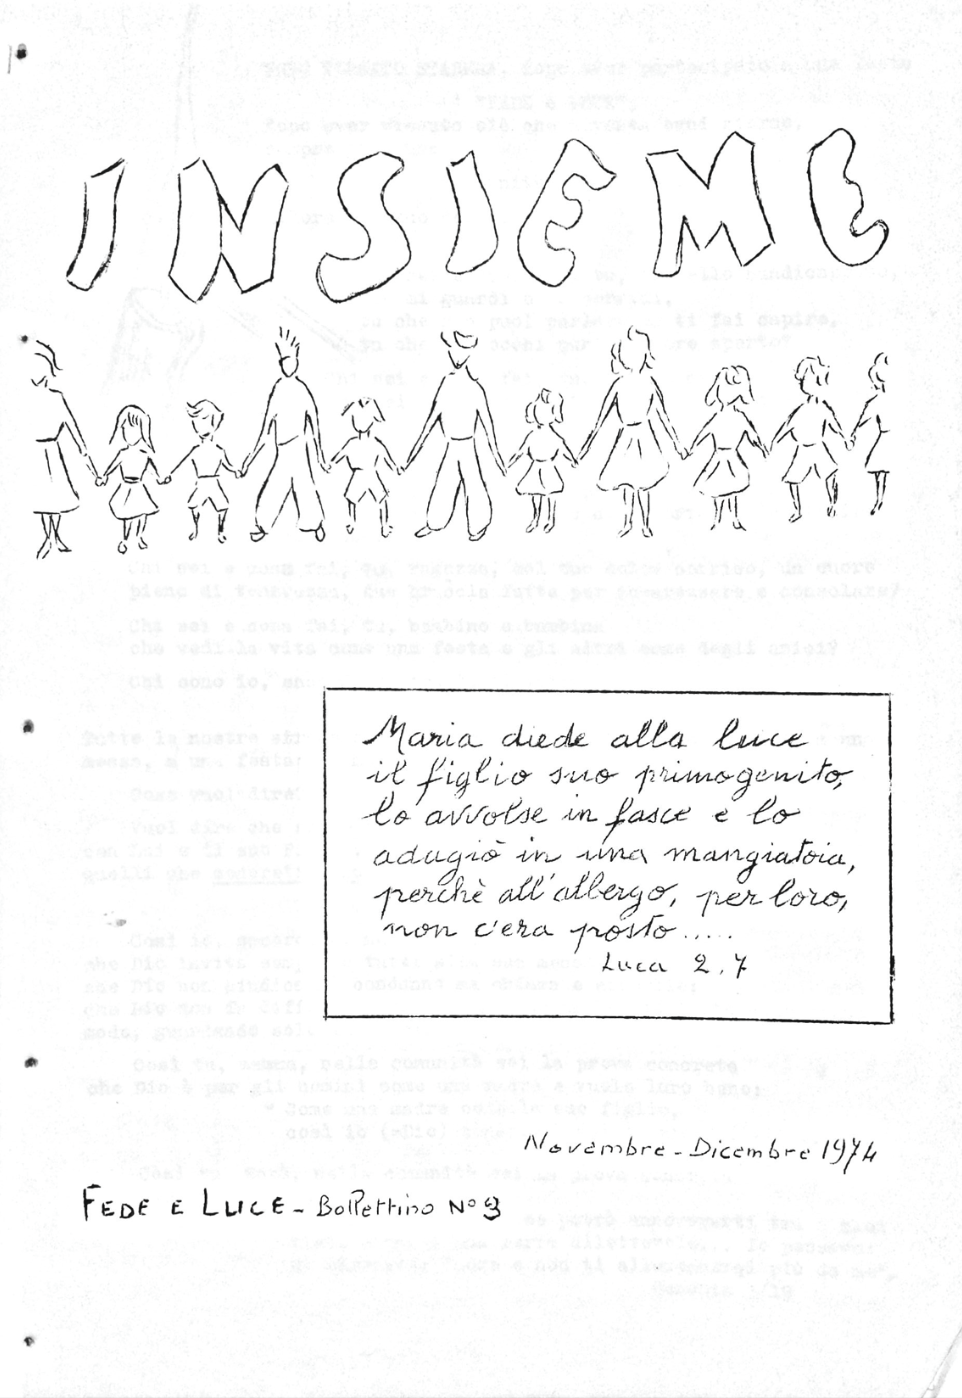 INSIEME
Maria diede alla luce
il figlio suo primogenito,
lo avvolse in fasce e lo
adagiò in una mangiatoia,
perchè all'albergo, per loro,
non c'era posto.....
Luca 2,7
Novembre - Dicembre 1974
FEDE E LUCE - Bollettino N° 3